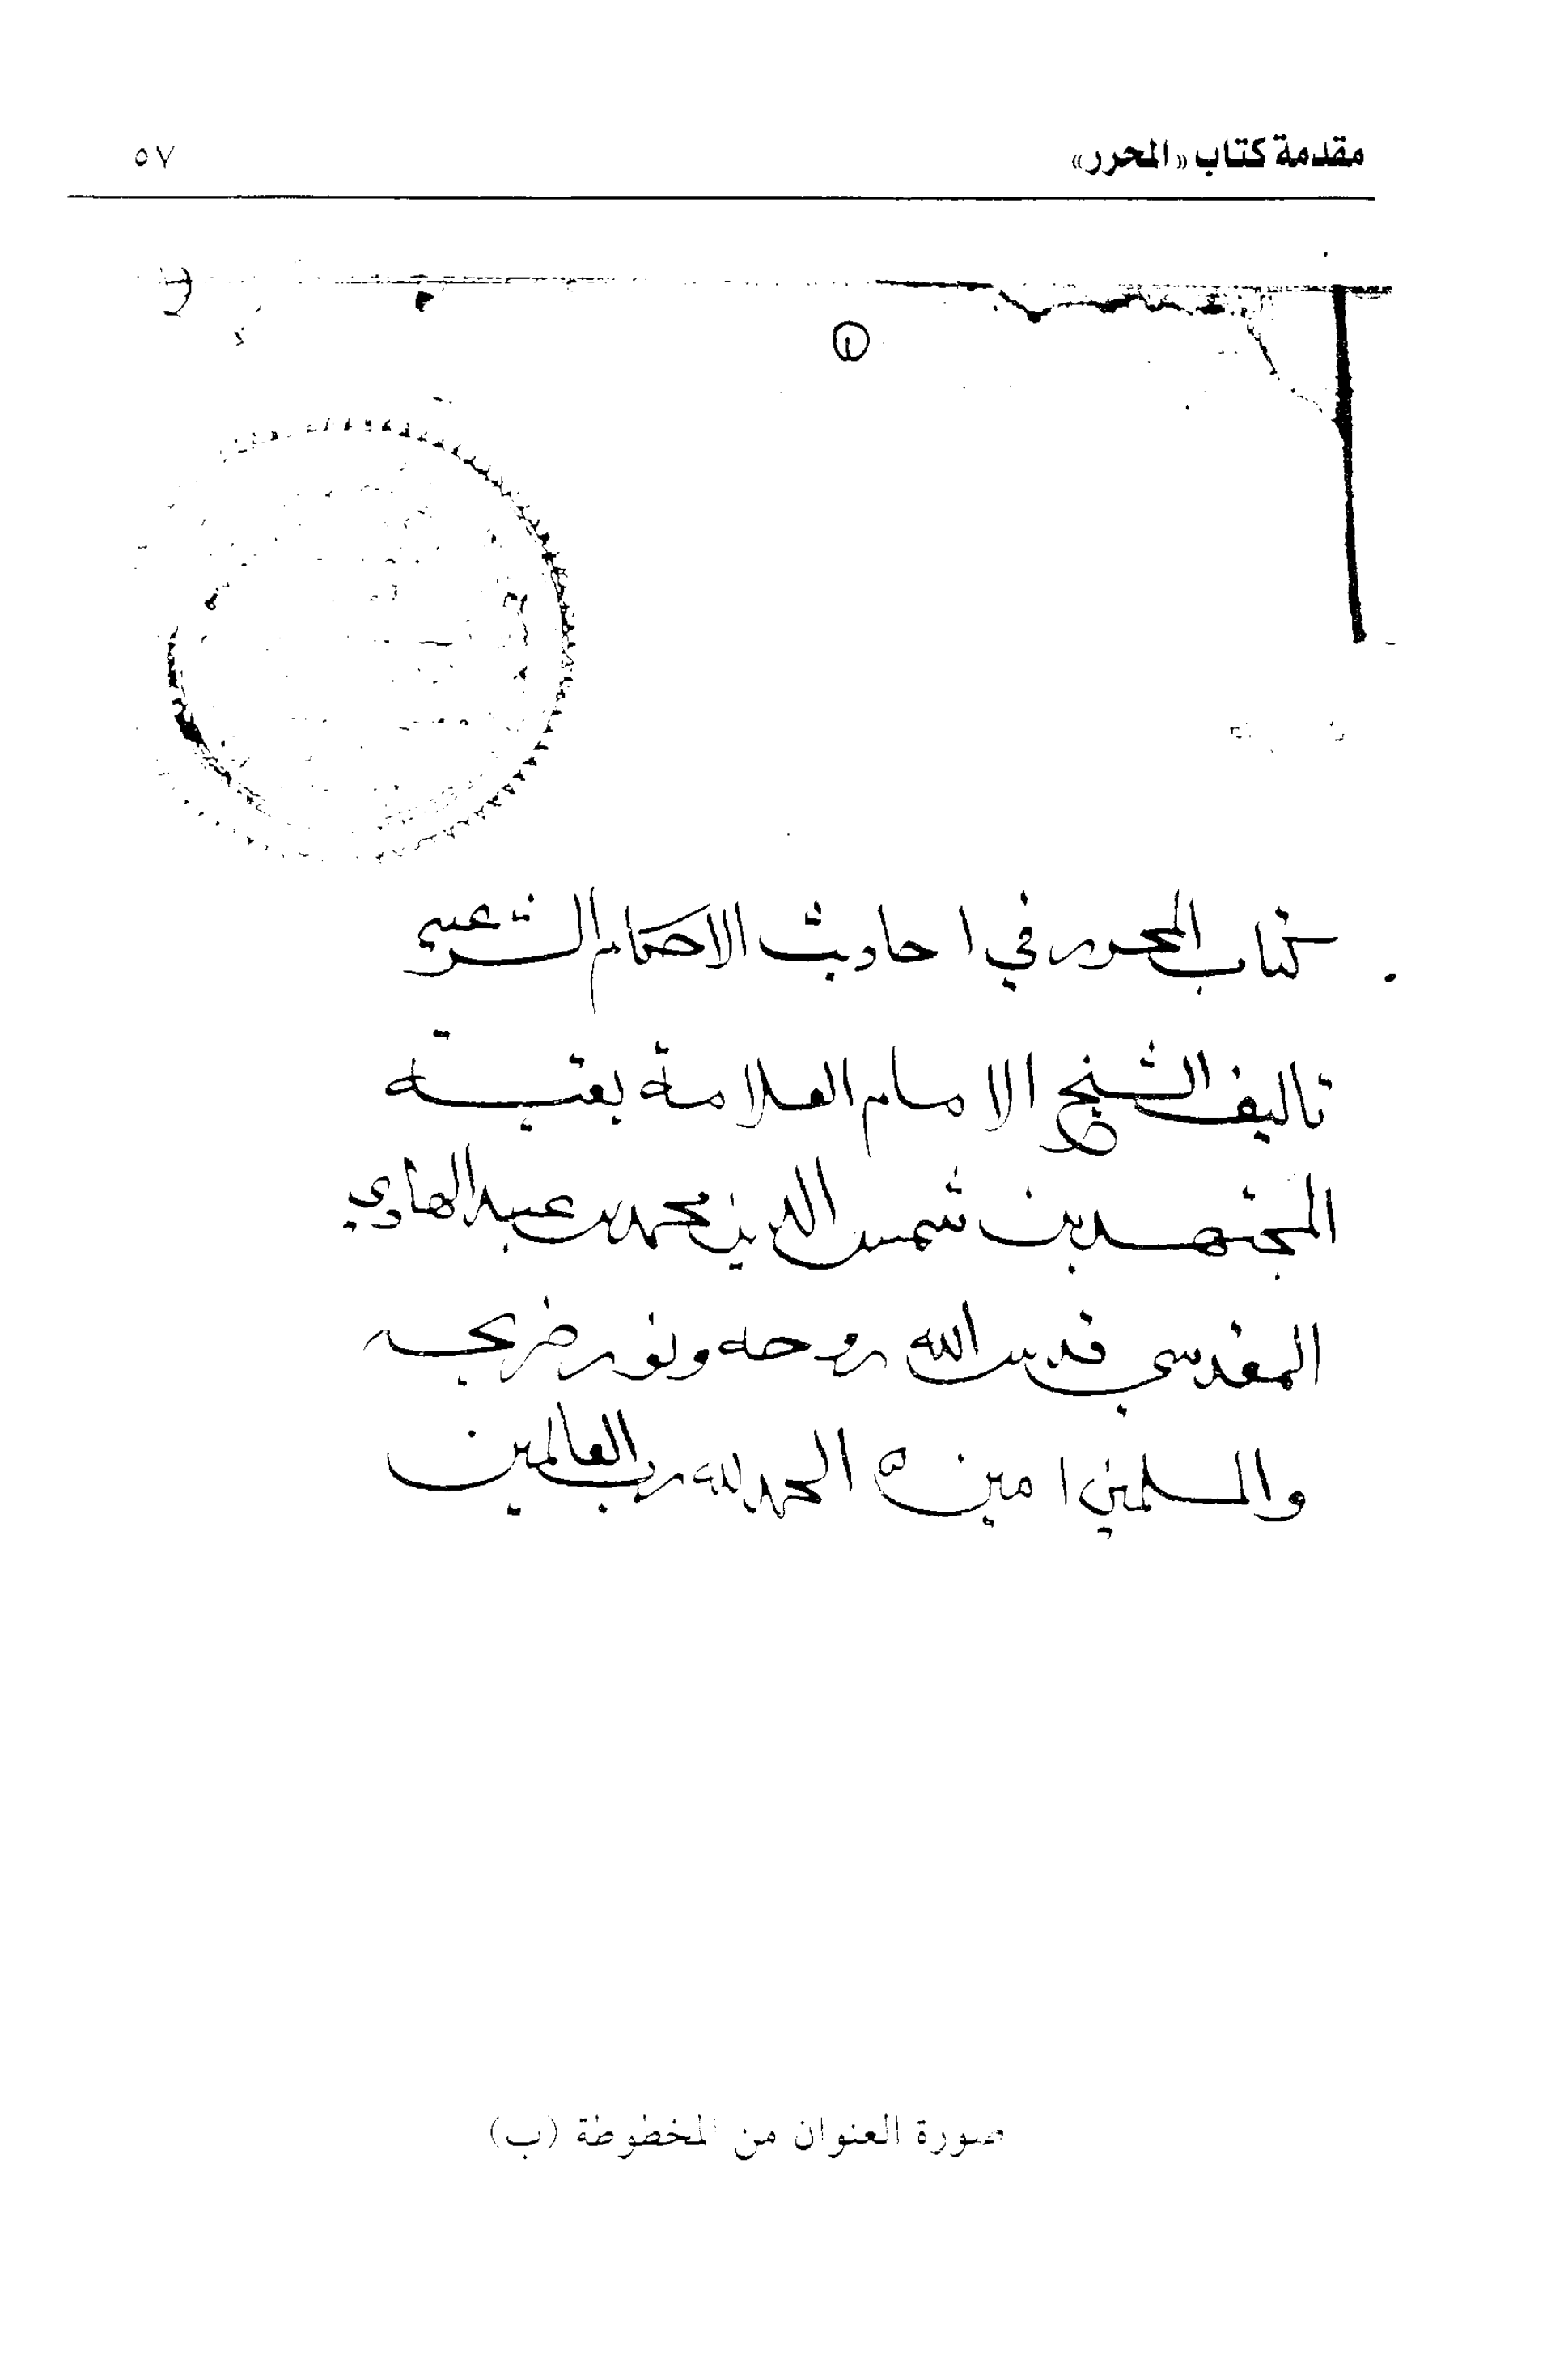 مقدمة كتاب «المحرر»
٥٧
١
كتاب المحرر في احاديث الاحكام الشرعيه
تاليف الشيخ الامام العلامة بقية
المجتهدين شمس الدين محمد بن عبد الهادي
المقدسي قدس الله روحه ونور ضريحه
والمسلمين امين ه الحمد لله رب العالمين
صورة العنوان من المخطوطة (ب)